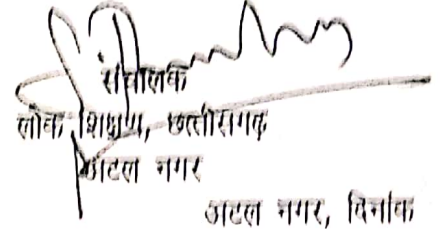 संचालक
लोक शिक्षण, छत्तीसगढ़
अटल नगर
अटल नगर, दिनांक